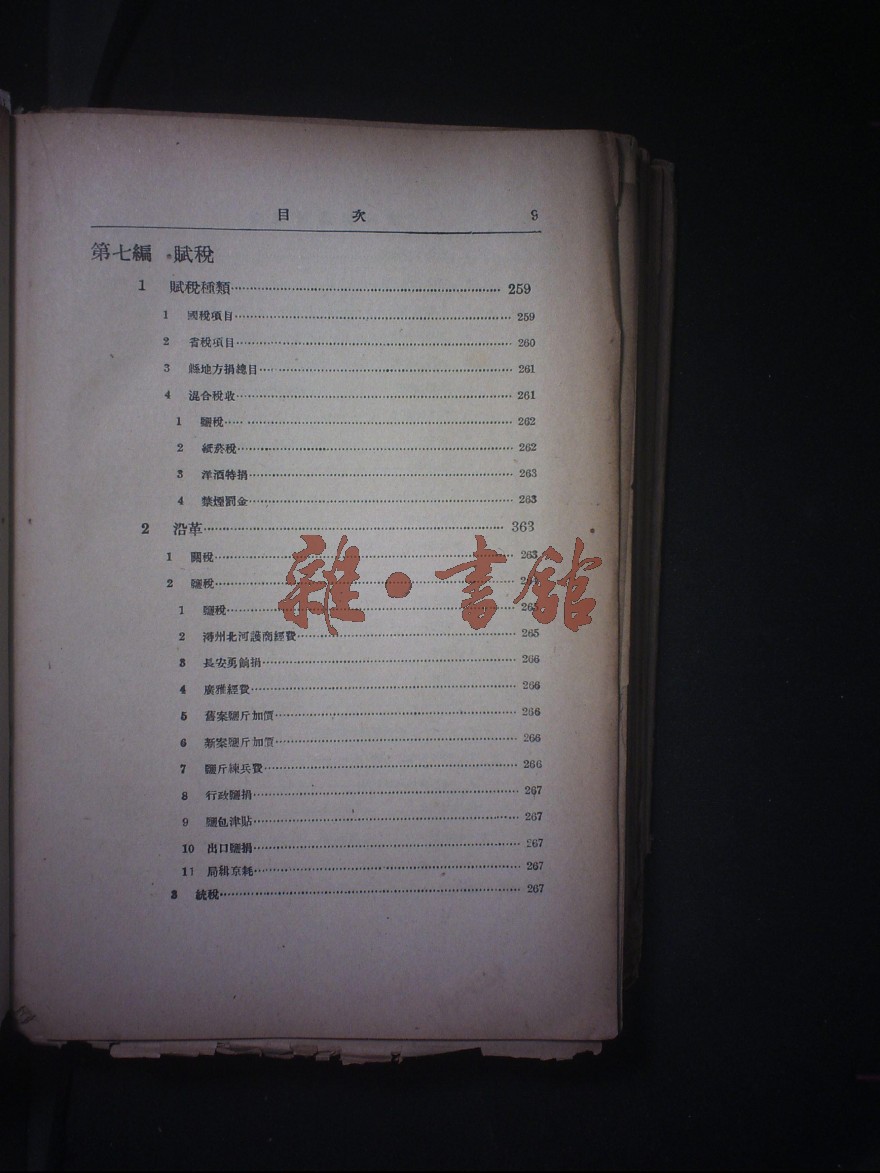 目　次　9
第七編　賦稅
1　賦稅種類……259
1　國稅項目……259
2　省稅項目……260
3　縣地方捐總目……261
4　混合稅收……261
1　鹽稅……262
2　紙菸稅……262
3　洋酒特捐……263
4　禁煙罰金……263
2　沿革……363
1　關稅……263
2　鹽稅……
1　鹽稅……265
2　潯州北河護商經費……265
3　長安勇餉捐……266
4　廣雅經費……266
5　舊案鹽斤加價……266
6　新案鹽斤加價……266
7　鹽斤練兵費……266
8　行政鹽捐……267
9　鹽包津貼……267
10　出口鹽捐……267
11　局緝京耗……267
3　統稅……267
雜·書館